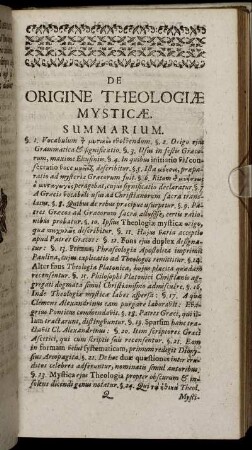 DE
ORIGINE THEOLOGIÆ
MYSTICÆ.
SUMMARIUM.
§. 1. Vocabulum evolvendum. §. 2. Origo ejus
Grammatica & significatio. §. 3. Usus in festis Græco-
rum, maxime Eleusiniis. §. 4. In quibus initiatio sive con-
secratio voce describitur. §. 5. Ista præpa-
ratio ad mysteria Græcorum fuit. §. 6. Eadem
peragebat, cujus significatio declaratur. §. 7
A Græcis vocabuli usus ad Christianorum sacra trans-
fertur. §. 8. Quibus de rebus præcipue usurpetur. §. 9. Pa-
tres Græcos ad Græcorum sacra allusisse, certis ratio-
nibus probatur. §. 10. Ipsa Theologia mystica
describitur. §. 11. Hujus varia acceptio
apud Patres Græcos. §. 12. Fons ejus duplex Assigna-
tur. §. 13. Primus, Pseudologia Apostolica imprimis
Paulina, cujus explicatio ad Theologos remittitur. §. 14.
Alter fons Theologia Platonica, hujus placita quædam
recensentur. §. 15. Philosophi Platonici Christianis ag-
gregati dogmata simul Christianismo admiscuere. §. 16.
Inde Theologiæ mysticæ labes aspersa. §. 17. A quo
Clemens Alexandrinus non parum laboravit: Eva-
grius Ponticus condemnatur. §. 18. Patres Græci, qui il-
lam tractarunt, distinguuntur. §. 19. Sparsim hanc tra-
ctavit Cl. Alexandrinus. §. 20. Item scriptores Græci
Ascetici, qui cum scriptis suis recensentur. §. 21. Eam
in formam velut systematicam, primum redegit Diony-
sius Areopagita. §. 22. De hoc duæ quæstiones inter eru-
ditos celebres adferuntur, nominatis simul autoribus.
§. 23. Mystica ejus Theologia propter obscurum & in-
solitum dicendi genus notatur. §. 24. Theol.
Q
Mysti-